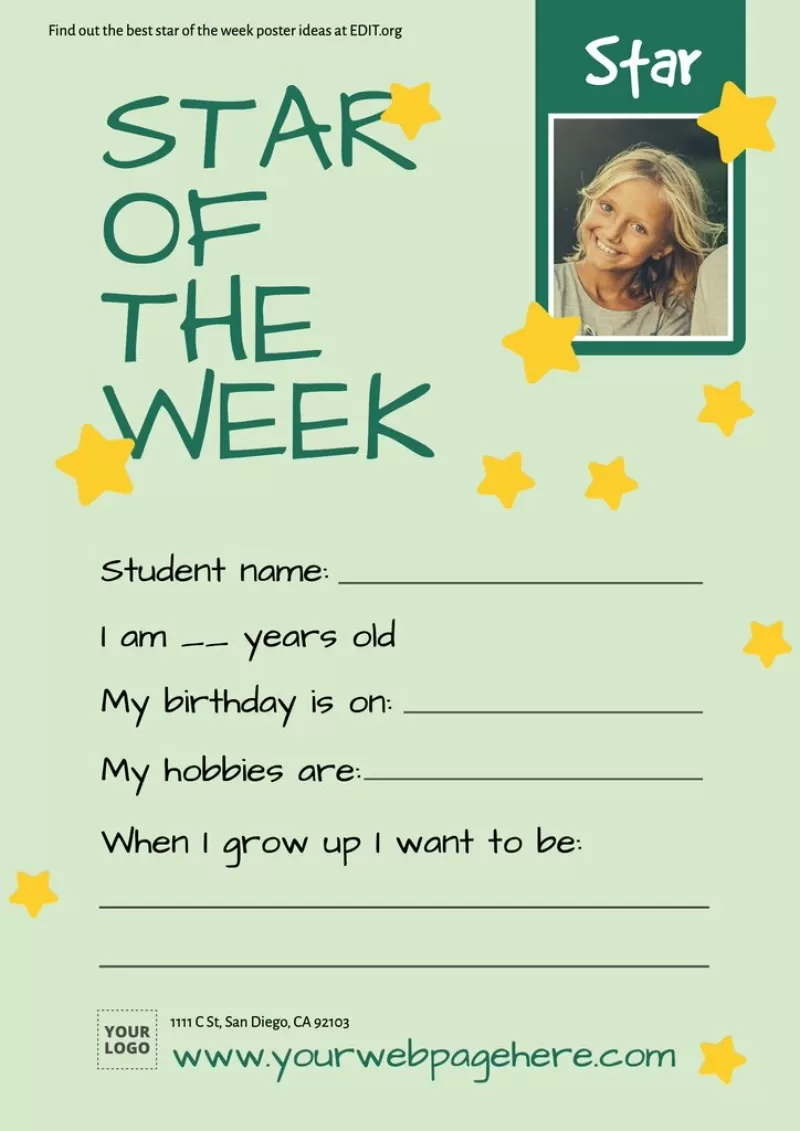 Find out the best star of the week poster ideas at EDIT.org
Star
STAR
OF
THE
WEEK
Student name:
I am __ years old
My birthday is on:
My hobbies are:
When I grow up I want to be:
YOUR
LOGO
1111 C St, San Diego, CA 92103
www.yourwebpagehere.com